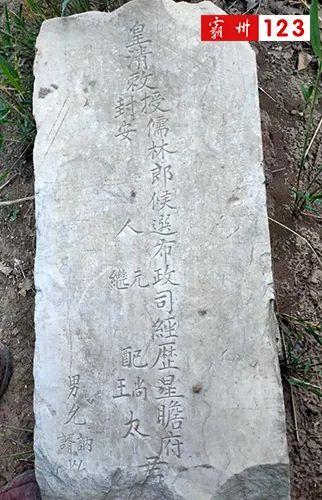 霸州123
皇清敕授儒林郎候選布政司經歷星瞻府君
封安人元配尚太
繼王
男允訥